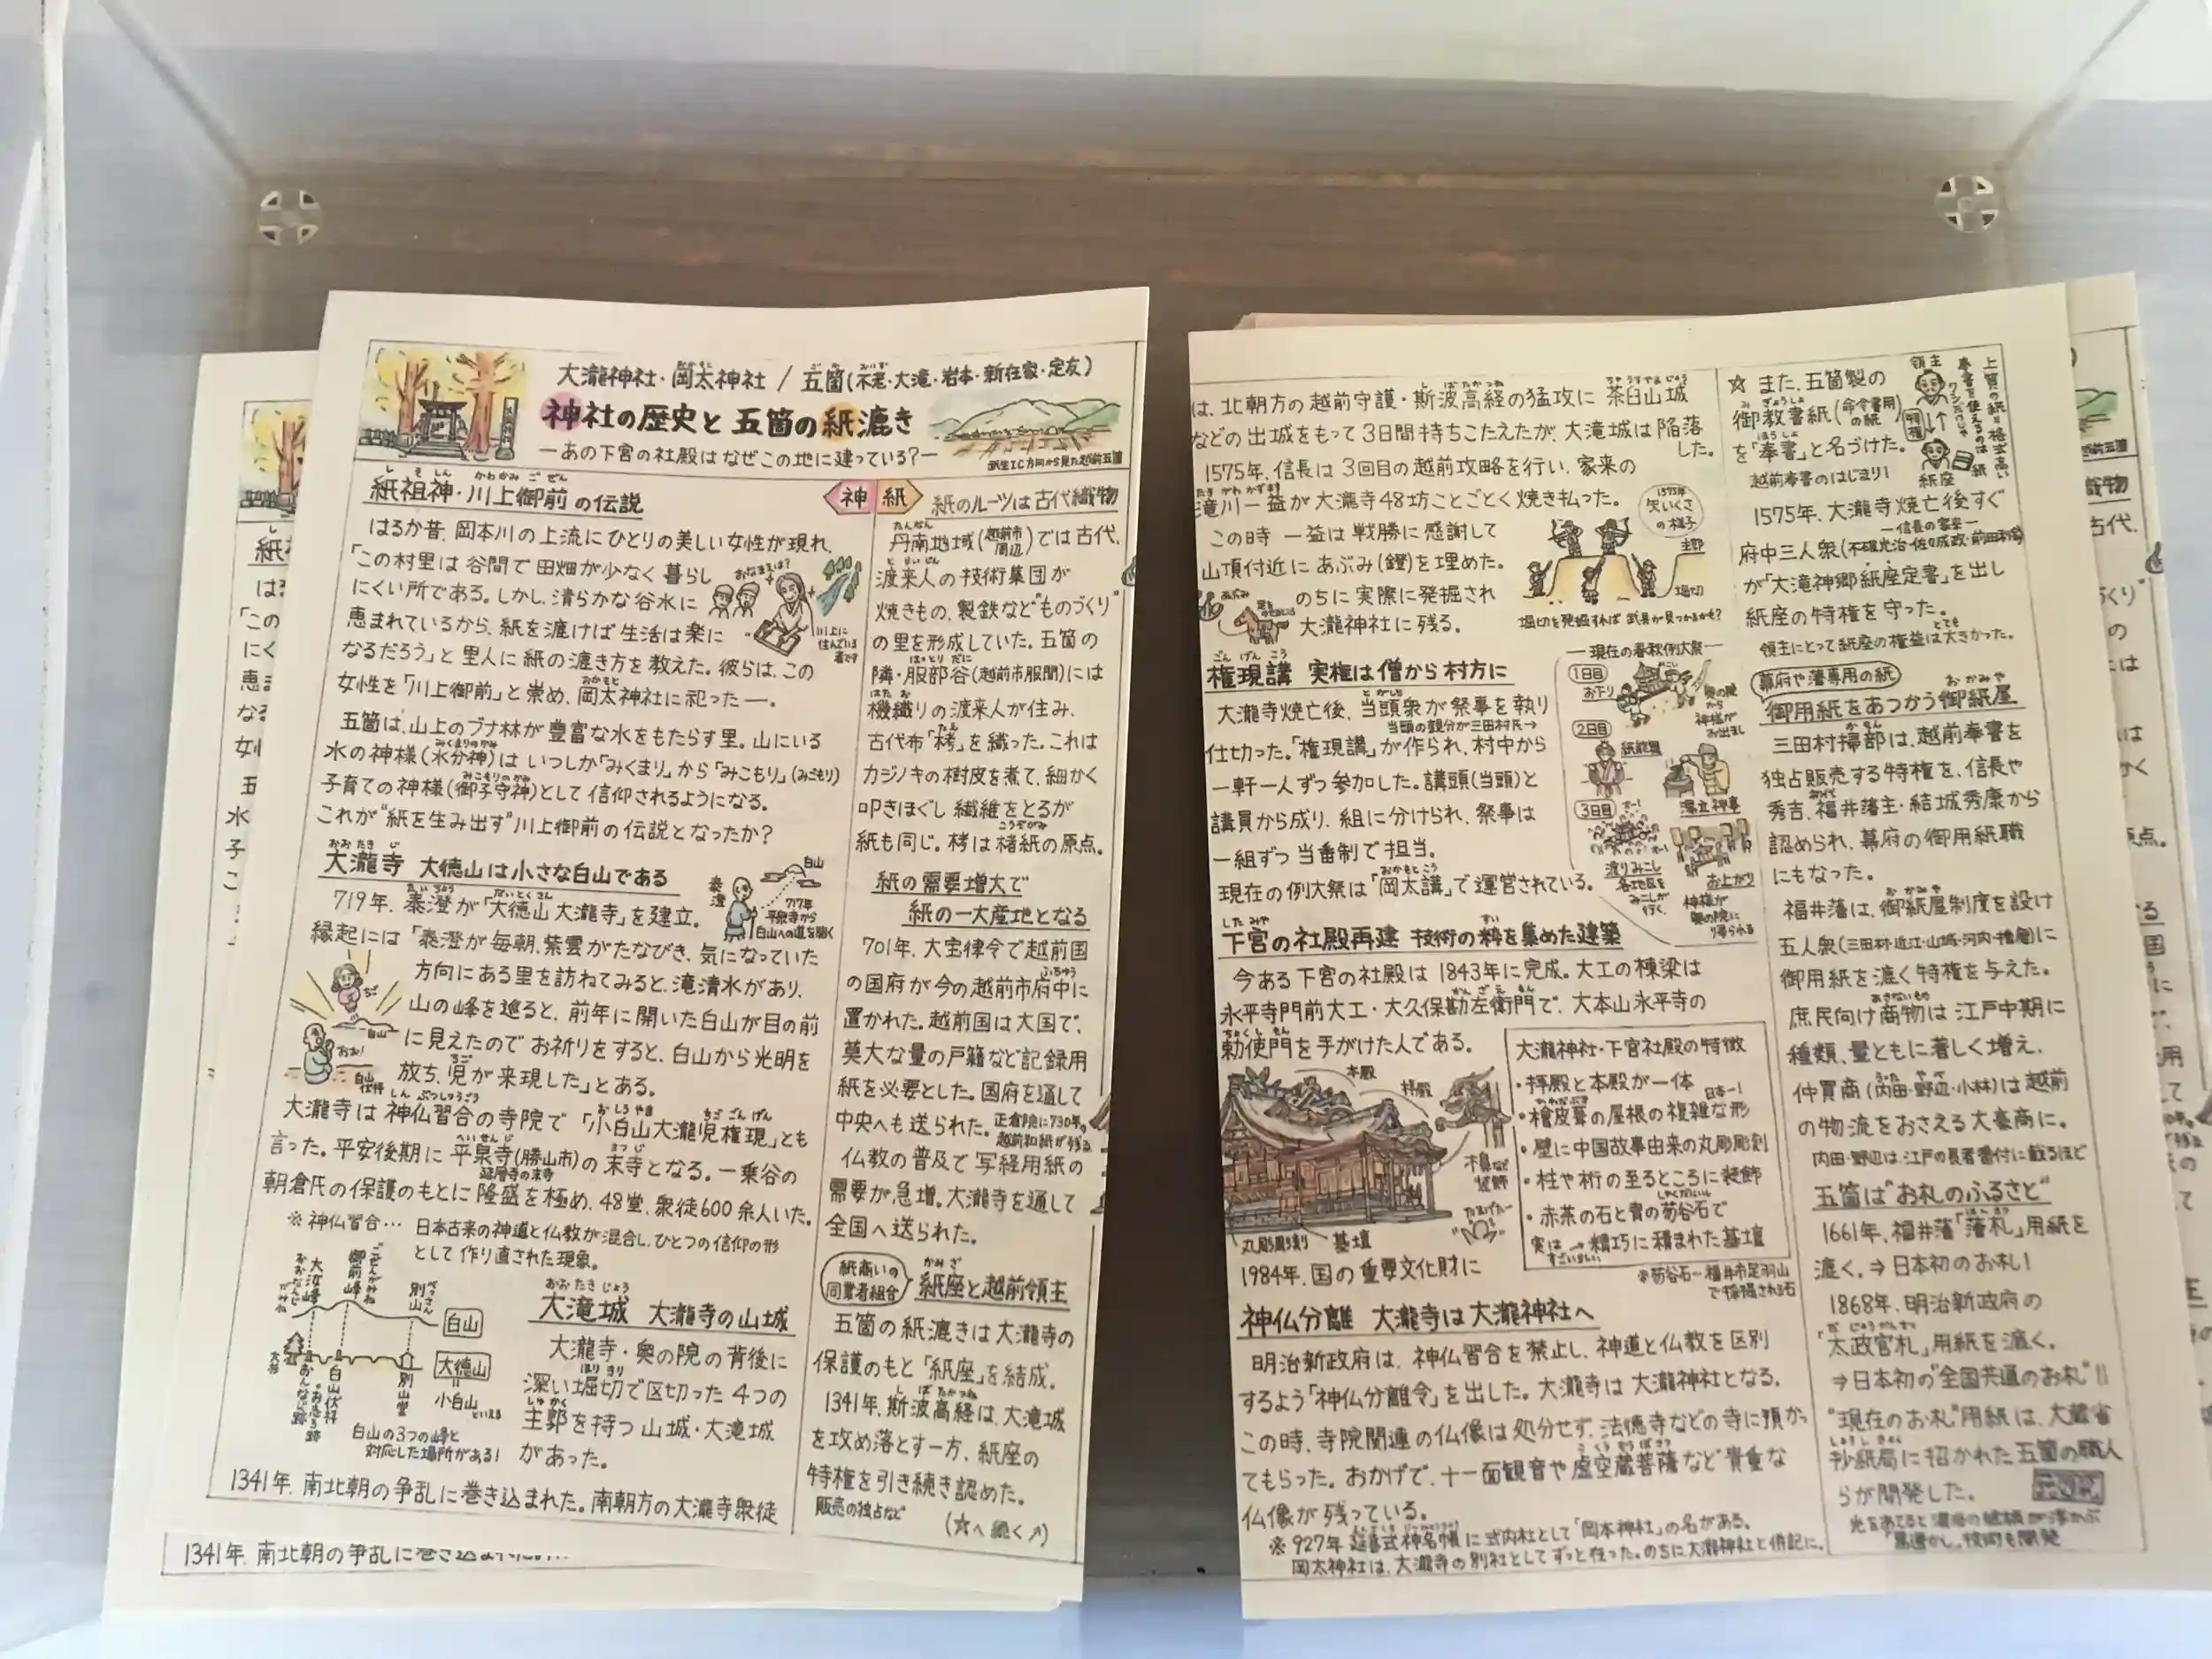 大瀧神社・岡太神社 / 五箇(不老・大滝・岩本・新在家・定友)
神社の歴史と五箇の紙漉き
—あの下宮の社殿はなぜこの地に建っている?—
武生IC方向から見た越前五箇
紙祖神・川上御前の伝説
はるか昔、岡本川の上流にひとりの美しい女性が現れ、
「この村里は谷間で田畑が少なく暮らし
にくい所である。しかし、清らかな谷水に
恵まれているから、紙を漉けば生活は楽に
なるだろう」と里人に紙の漉き方を教えた。彼らは、この
女性を「川上御前」と崇め、岡太神社に祀った—。
おなまえは?
川上に
住んでいる
者です
五箇は、山上のブナ林が豊富な水をもたらす里。山にいる
水の神様(水分神)はいつしか「みくまり」から「みこもり」(みごもり)
子育ての神様(御子守神)として信仰されるようになる。
これが“紙を生み出す”川上御前の伝説となったか?
大瀧寺 大徳山は小さな白山である
719年、泰澄が「大徳山大瀧寺」を建立。
縁起には「泰澄が毎朝、紫雲がたなびき、気になっていた
方向にある里を訪ねてみると、滝清水があり、
山の峰を巡ると、前年に開いた白山が目の前
に見えたのでお祈りをすると、白山から光明を
放ち、児が来現した」とある。
泰澄
白山
717年
平泉寺から
白山への道を開く
ちご
白山
おお!
白山
伏拝
大瀧寺は神仏習合の寺院で「小白山大瀧児権現」とも
言った。平安後期に平泉寺(勝山市)の末寺となる。一乗谷の
延暦寺の末寺
朝倉氏の保護のもとに隆盛を極め、48堂、衆徒600余人いた。
※神仏習合… 日本古来の神道と仏教が混合し、ひとつの信仰の形
として作り直された現象。
大汝峰
御前峰
別山
白山
大徳山
小白山
大杉
おおなんじ跡
白山伏拝
別山堂
白山の3つの峰と
対応した場所がある!
大滝城 大瀧寺の山城
大瀧寺・奥の院の背後に
深い堀切で区切った4つの
主郭を持つ山城・大滝城
があった。
1341年、南北朝の争乱に巻き込まれた。南朝方の大瀧寺衆徒
神
紙
紙のルーツは古代織物
丹南地域(越前市周辺)では古代、
渡来人の技術集団が
焼きもの、製鉄など“ものづくり”
の里を形成していた。五箇の
隣・服部谷(越前市服間)には
機織りの渡来人が住み、
古代布「栲」を織った。これは
カジノキの樹皮を煮て、細かく
叩きほぐし繊維をとるが
紙も同じ。栲は楮紙の原点。
紙の需要増大で
紙の一大産地となる
701年、大宝律令で越前国
の国府が今の越前市府中に
置かれた。越前国は大国で、
莫大な量の戸籍など記録用
紙を必要とした。国府を通して
中央へも送られた。正倉院に730年の
越前和紙が残る
仏教の普及で写経用紙の
需要が急増。大瀧寺を通して
全国へ送られた。
紙商いの
同業者組合
紙座と越前領主
五箇の紙漉きは大瀧寺の
保護のもと「紙座」を結成。
1341年、斯波高経は、大滝城
を攻め落とす一方、紙座の
特権を引き続き認めた。
販売の独占など
(☆へ続く↗)
1341年、南北朝の争乱に巻き込まれた
は、北朝方の越前守護・斯波高経の猛攻に茶臼山城
などの出城をもって3日間持ちこたえたが、大滝城は陥落
した。
1575年、信長は3回目の越前攻略を行い、家来の
滝川一益が大瀧寺48坊ことごとく焼き払った。
この時 一益は戦勝に感謝して
山頂付近にあぶみ(鐙)を埋めた。
のちに実際に発掘され
大瀧神社に残る。
あぶみ
1575年
矢いくさ
の様子
主郭
堀切
堀切を発掘すれば武具が見つかるかも?
権現講 実権は僧から村方に
大瀧寺焼亡後、当頭衆が祭事を執り
当頭の親分が三田村氏→
仕切った。「権現講」が作られ、村中から
一軒一人ずつ参加した。講頭(当頭)と
講員から成り、組に分けられ、祭事は
一組ずつ当番制で担当。
現在の例大祭は「岡太講」で運営されている。
—現在の春秋例大祭—
1日目
お下り
奥の院
から
神様が
お出まし
2日目
紙能舞
湯立神事
3日目
渡りみこし
各地区を
みこしが
行く
お上がり
神様が
奥の院に
帰られる
下宮の社殿再建 技術の粋を集めた建築
今ある下宮の社殿は1843年に完成。大工の棟梁は
永平寺門前大工・大久保勘左衛門で、大本山永平寺の
勅使門を手がけた人である。
本殿
拝殿
木鼻など
装飾
丸彫り彫刻
基壇
1984年、国の重要文化財に
大瀧神社・下宮社殿の特徴
・拝殿と本殿が一体
日本一!
・檜皮葺の屋根の複雑な形
・壁に中国故事由来の丸彫彫刻
・柱や桁の至るところに装飾
・赤茶の石と青の笏谷石で
実は→精巧に積まれた基壇
すごいらしい
※笏谷石…福井市足羽山
で採掘される石
神仏分離 大瀧寺は大瀧神社へ
明治新政府は、神仏習合を禁止し、神道と仏教を区別
するよう「神仏分離令」を出した。大瀧寺は大瀧神社となる。
この時、寺院関連の仏像は処分せず、法徳寺などの寺に預かっ
てもらった。おかげで、十一面観音や虚空蔵菩薩など貴重な
仏像が残っている。
※927年延喜式神名帳に式内社として「岡本神社」の名がある。
岡太神社は、大瀧寺の別社としてずっと在った。のちに大瀧神社と併記に。
☆また、五箇製の
御教書紙(命令書用の紙)
を「奉書」と名づけた。
越前奉書のはじまり!
領主
特権
紙
紙座
上質の紙=格式高い
奉書を使えるのは
ワシだけじゃ
1575年、大瀧寺焼亡後すぐ
—信長の家来—
府中三人衆(不破光治・佐々成政・前田利家)
が「大滝神郷紙座定書」を出し
紙座の特権を守った。
領主にとって紙座の権益はとても大きかった。
幕府や藩専用の紙
御用紙をあつかう御紙屋
三田村掃部は、越前奉書を
独占販売する特権を、信長や
秀吉、福井藩主・結城秀康から
認められ、幕府の御用紙職
にもなった。
福井藩は、御紙屋制度を設け
五人衆(三田村・近江・山城・河内・播磨)に
御用紙を漉く特権を与えた。
庶民向け商物は江戸中期に
種類、量ともに著しく増え、
仲買商(内田・野辺・小林)は越前
の物流をおさえる大豪商に。
内田・野辺は、江戸の長者番付に載るほど
五箇は“お札のふるさと”
1661年、福井藩「藩札」用紙を
漉く。⇒日本初のお札!
1868年、明治新政府の
「太政官札」用紙を漉く。
⇒日本初の“全国共通のお札”!!
“現在のお札”用紙は、大蔵省
抄紙局に招かれた五箇の職人
らが開発した。
「黒透かし」技術を開発